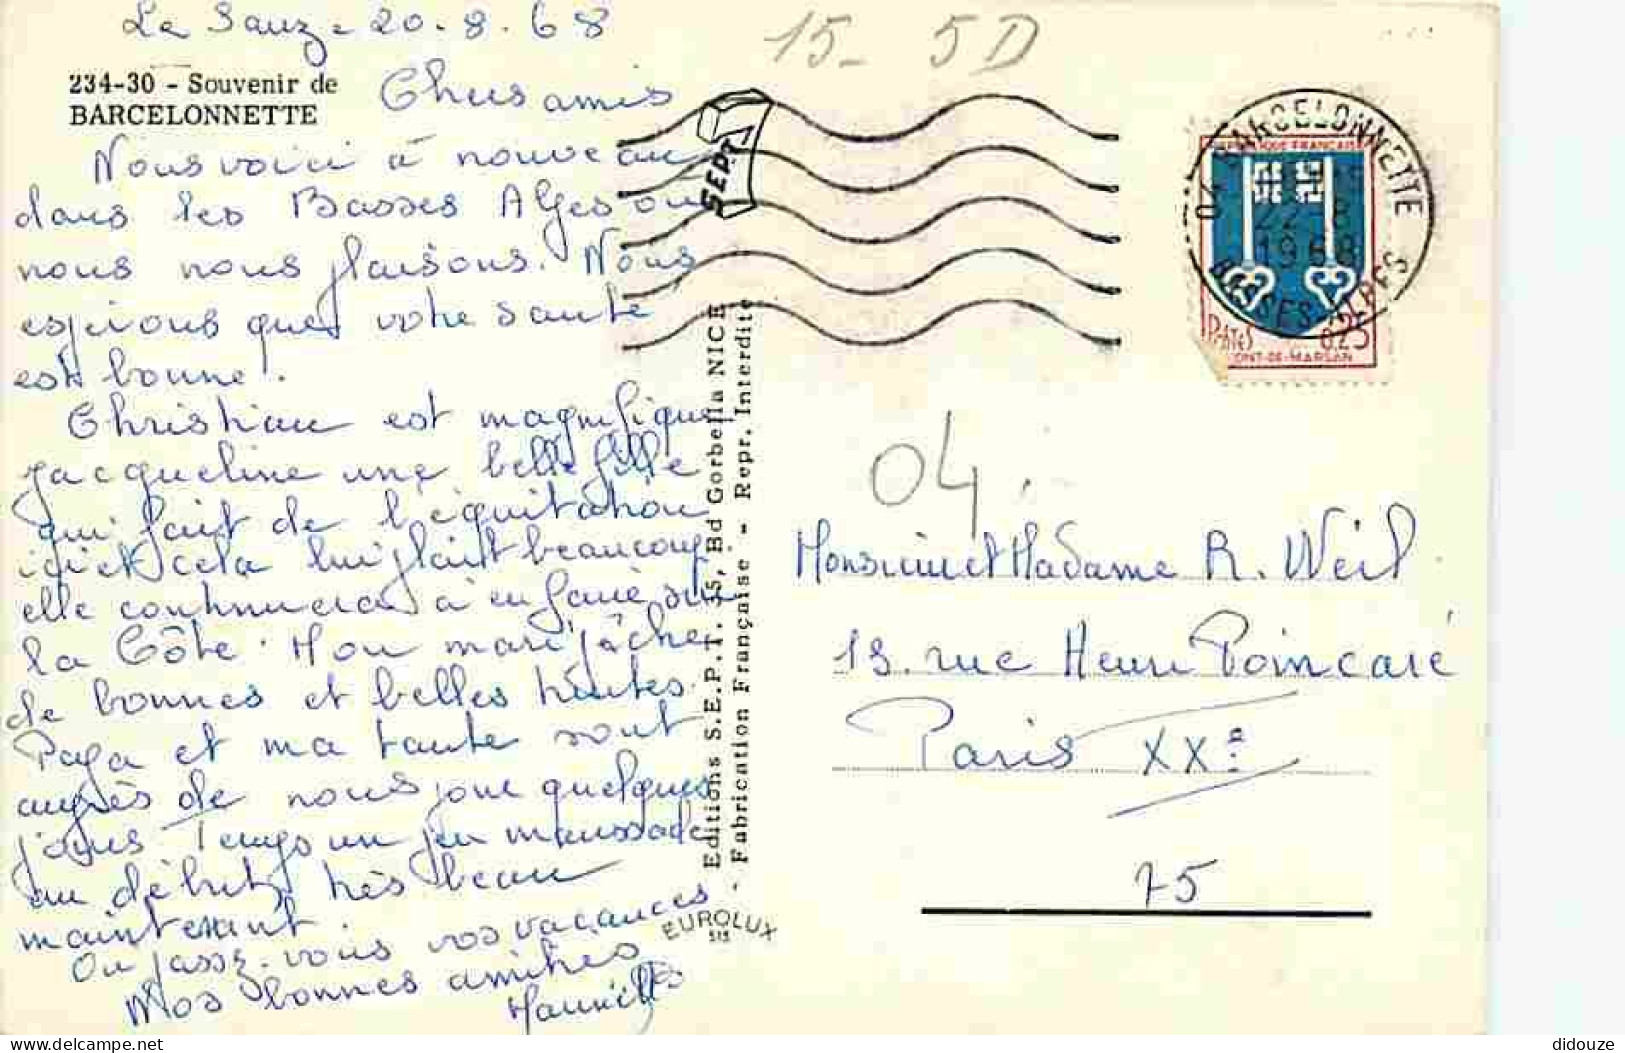 Le Sauz - 20. 8. 68
15- 5D
234-30 - Souvenir de
BARCELONNETTE
Chers amis
Nous voici à nouveau
dans les Basses Alpes où
nous nous plaisons. Nous
espérons que votre santé
est bonne.
Christian est magnifique
Jacqueline une belle fille
qui fait de l'équitation
ici et cela lui plait beaucoup
elle continuera à en faire sur
la Côte. Mon mari pêche
de bonnes et belles truites.
Papa et ma tante sont
auprès de nous pour quelques
jours Temps un peu maussade
au début, très beau
maintenant.
Où passez-vous vos vacances
Nos bonnes amitiés
SEPT
04 BARCELONNETTE
22-8
1968
BASSES-ALPES
REPUBLIQUE FRANÇAISE
POSTES 0,25
MONT-DE-MARSAN
Editions S.E.P.T. 35, Bd Gorbella NICE
Fabrication Française - Repr. Interdite
EUROLUX
04.
Monsieur et Madame R. Weil
13. rue Henri Poincaré
Paris XXe
75
delcampe.net
didouze